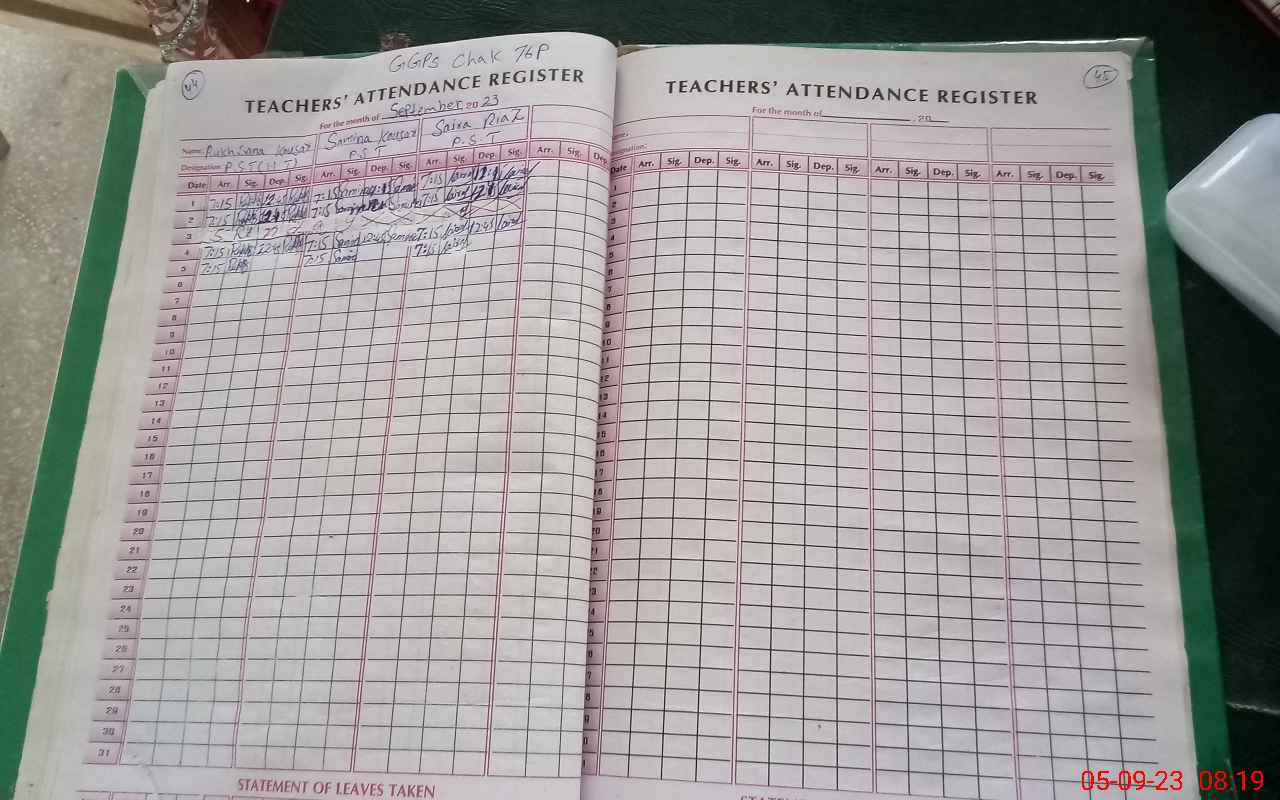 44
GGPS Chak 76P
TEACHERS' ATTENDANCE REGISTER
For the month of September 20 23
Name. Rukhsana Kausar Samina Kausar Saira Riaz
Designation: P.S.T (H.T) P.S.T P.S.T
Date Arr. Sig. Dep. Sig. Arr. Sig. Dep. Sig. Arr. Sig. Dep. Sig. Arr. Sig. Dep.
1 7:15 7:15 7:15
2 7:15 7:15 7:15
3
4 7:15 12:45 7:15 12:45 7:15 12:45
5 7:15 7:15 7:15
6
7
8
9
10
11
12
13
14
15
16
17
18
19
20
21
22
23
24
25
26
27
28
29
30
31
STATEMENT OF LEAVES TAKEN
45
TEACHERS' ATTENDANCE REGISTER
For the month of , 20
Date Arr. Sig. Dep. Sig. Arr. Sig. Dep. Sig. Arr. Sig. Dep. Sig. Arr. Sig. Dep. Sig.
1
2
3
4
5
6
7
8
9
10
11
12
13
14
15
16
17
18
19
20
21
22
05-09-23 08:19